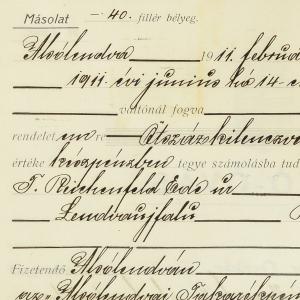 Másolat – 40. fillér bélyeg.
Alsólendva 1911. februá
1911. évi junius hó 14-é
váltónál fogva
rendelet em re Ötszázkilenczve
értéke készpénzben tegye számolásba tud
T. Reichenfeld Ede ur
Lendvaujfalu
Fizetendő Alsólendván
az „Alsólendvai Takarékpén